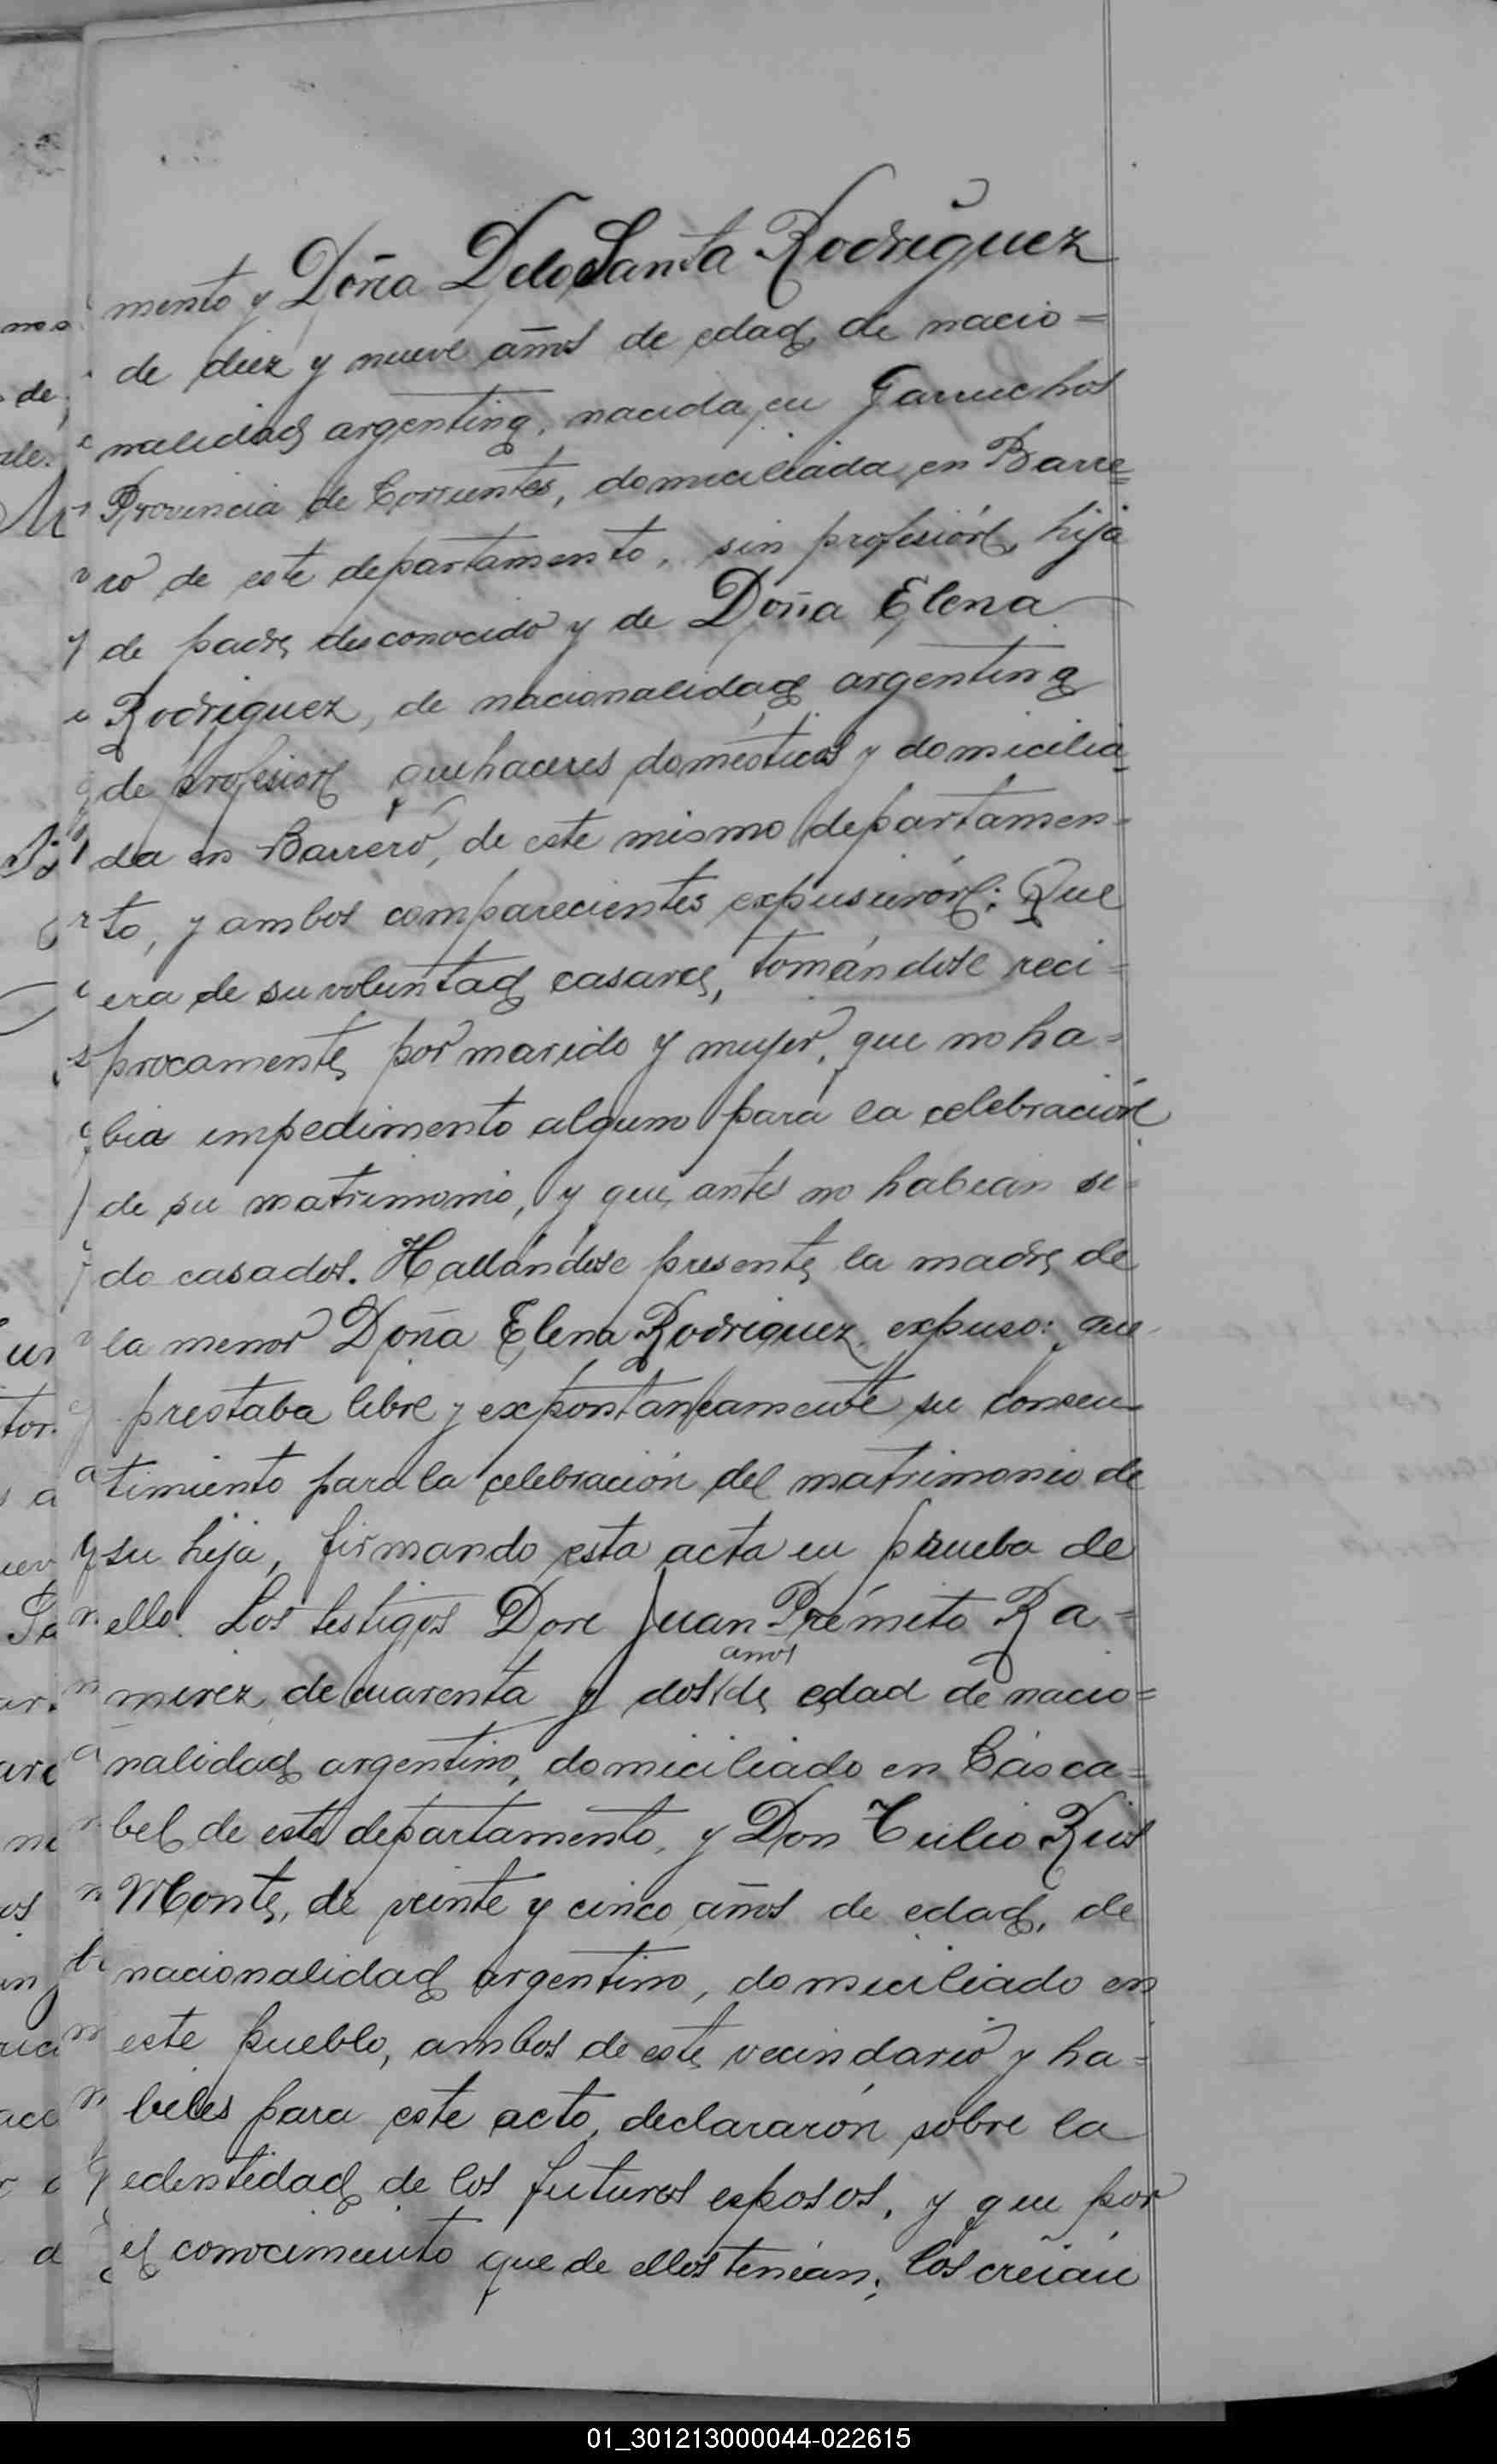 mento y Doña DeloSanta Rodriguez
de diez y nueve años de edad, de nacio=
nalidad argentina, nacida en Garruchos
Provincia de Corrientes, domiciliada en Barre=
ro de este departamento, sin profesión, hija
de padre desconocido y de Doña Elena
Rodriguez, de nacionalidad argentina
de profesion quehaceres domésticos y domicilia
da en Barrero, de este mismo departamen=
to, y ambos comparecientes expusierón: Que
era de su voluntad casarce, tomándose reci=
procamente por marido y mujer, que no ha=
bia impedimento alguno para la celebración
de su matrimonio, y que antes no habian si=
do casados. Hallándose presente la madre de
la menor Doña Elena Rodriguez expuso: que
prestaba libre y expontaneamente su consen
timiento para la celebración del matrimonio de
su hija, firmando esta acta en prueba de
ello. Los testigos Don Juan Prémito Ra=
mirez de cuarenta y dos años de edad de nacio=
nalidad argentino, domiciliado en Cásca=
bel de este departamento, y Don Tulio Rios
Monte, de veinte y cinco años de edad, de
nacionalidad argentino, domiciliado en
este pueblo, ambos de este vecindario y ha=
biles para este acto, declararón sobre la
edentidad de los futuros esposos, y que por
el conocimiento que de ellos tenian; los creian
01_301213000044-022615